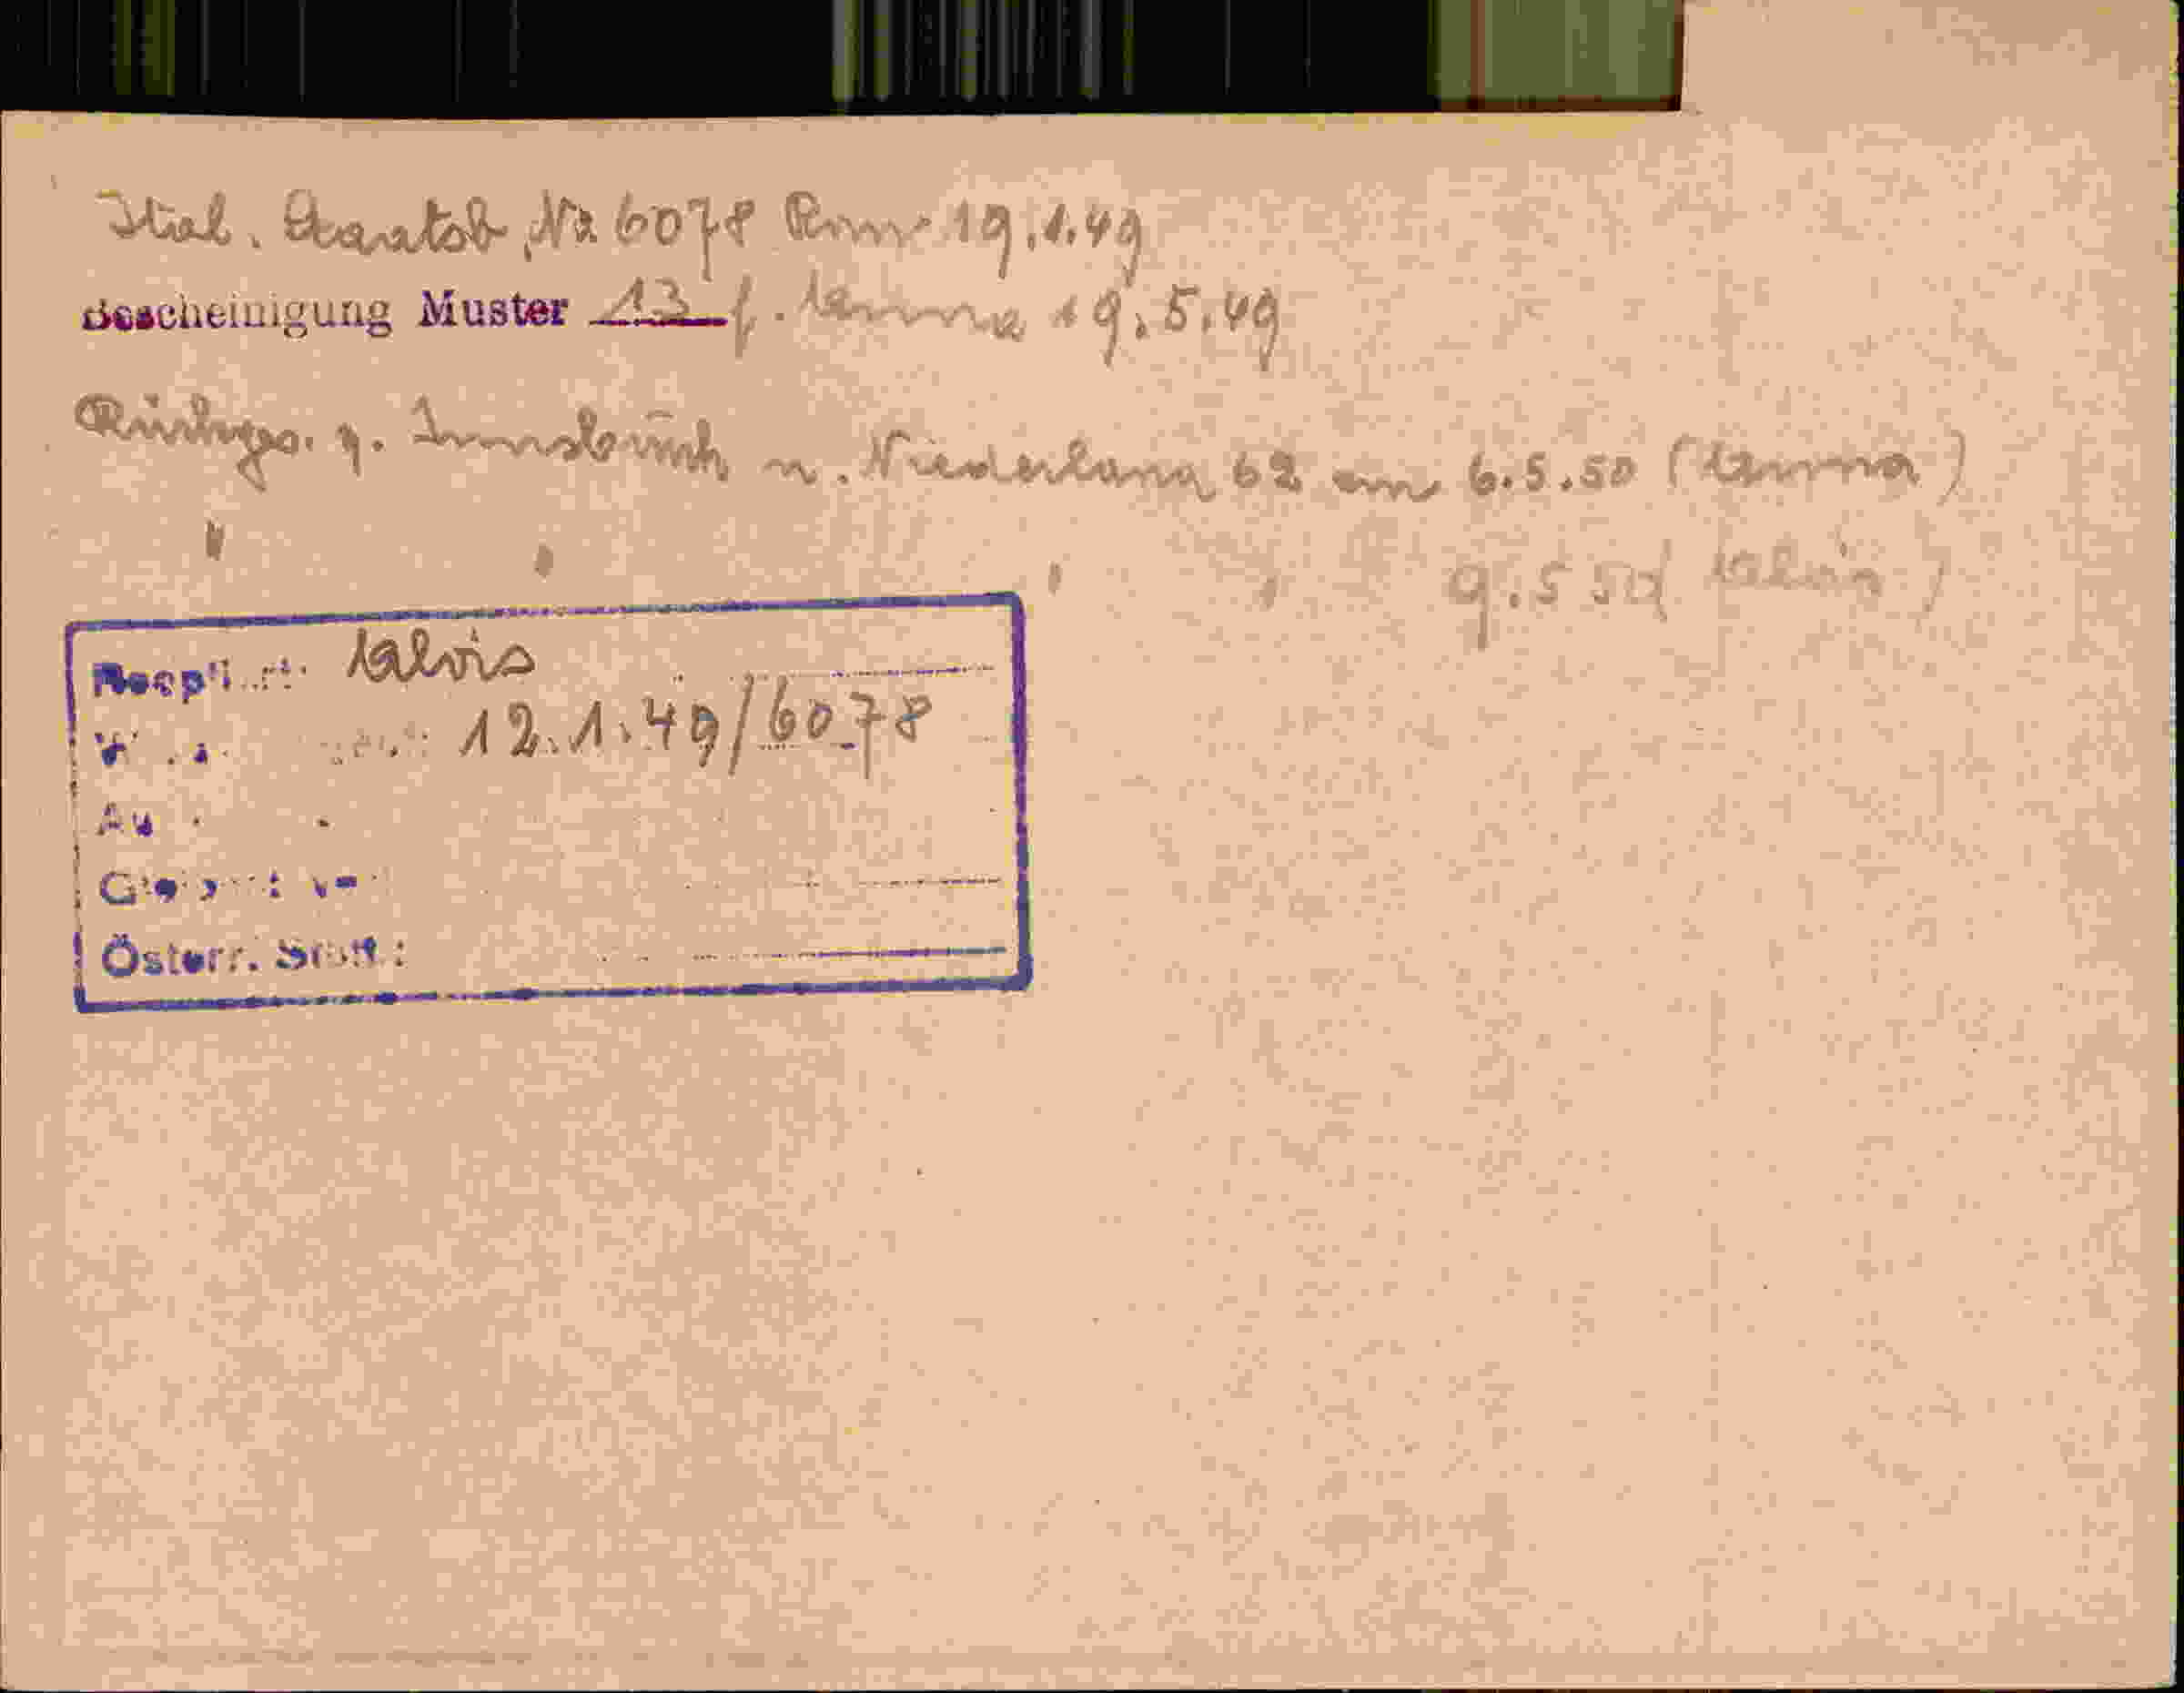 Ital. Staatsb. Nr 6078 Rom 19.1.49
Bescheinigung Muster 13 f. Anna 19.5.49
v. Innsbruck n. Niederlana 62 am 6.5.50 (Anna)
" " " " 9.5 50 (Alois)
Reopt Alois
12.1.49/6078
Österr.